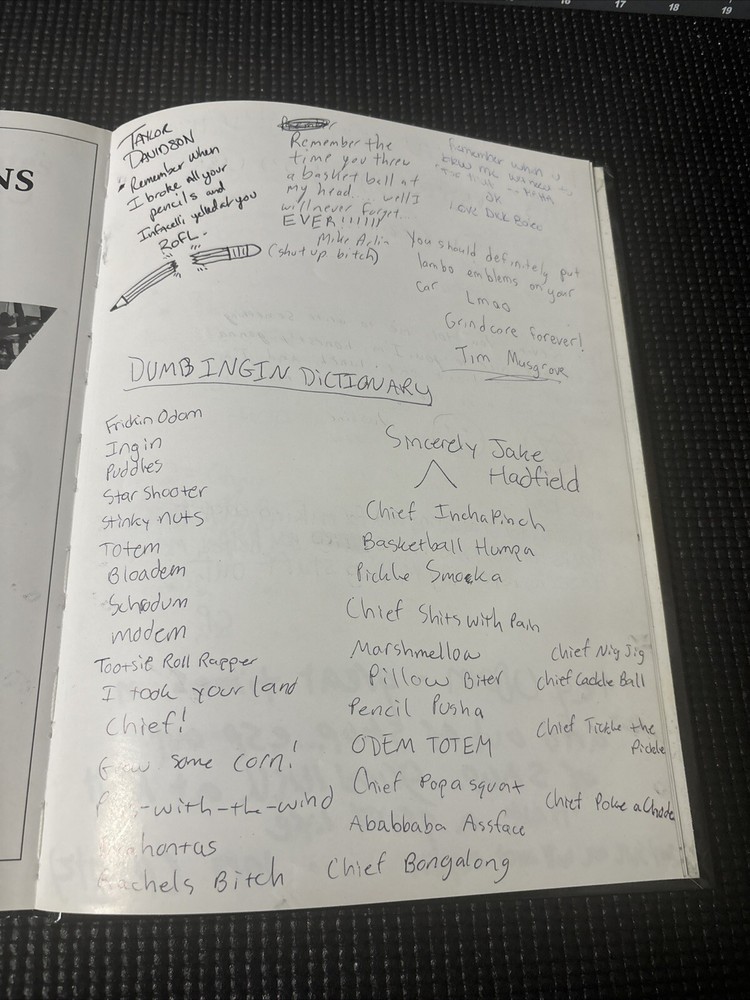 16 17 18 19
NS
TAYLOR
DAVIDSON
• Remember when
I broke all your
pencils and
yelled at you
ROFL.
Remember the
time you threw
a basket ball at
my head... well I
will never forget...
EVER!!!!!!
Mike
(shut up bitch)
Remember when u
JK
Love
You should definitely put
lambo emblems on your
car Lmao
Grindcore forever!
Tim Musgrove
DUMB INGIN DICTIONARY
Frickin Odam
Ingin
Puddles
Star Shooter
Stinky nuts
Totem
Bloadem
Schodum
modem
Tootsie Roll Rapper
I took your land
Chief!
Grow some corn!
-with-the-wind
hontas
Rachels Bitch
Sincerely Jake
Hadfield
Chief InchaPinch
Basketball Humpa
Pickle Smocka
Chief Shits with Pain
Marshmellow
Pillow Biter
Pencil Pusha
ODEM TOTEM
Chief Popasquat
Ababbaba Assface
Chief Bongalong
Chief Nig Jig
Chief Caddle Ball
Chief Tickle the
Pickle
Chief Poke a Chode